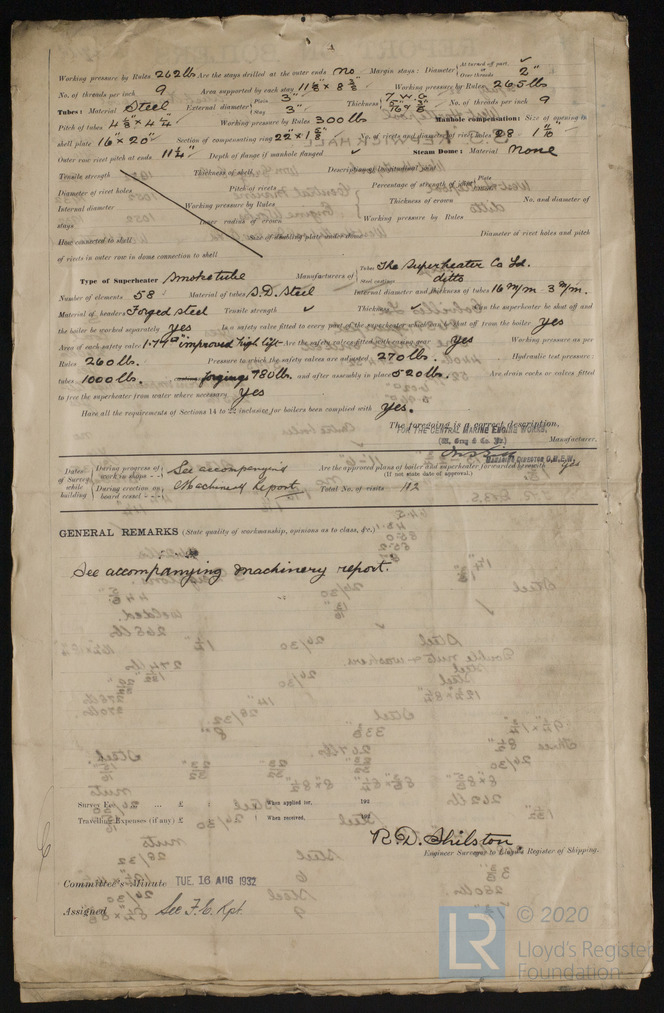 Working pressure by Rules 262 lbs Are the stays drilled at the outer ends no Margin stays: Diameter { At turned off part, or Over threads 2"
No. of threads per inch 9 Area supported by each stay 11 1/8" × 8 3/8" Working pressure by Rules 265 lbs
Tubes: Material Steel External diameter { Plain 3" Stay 3" Thickness { 7 W.G. 5/16" & 3/8" No. of threads per inch 9
Pitch of tubes 4 1/8" × 4 1/4" Working pressure by Rules 300 lbs Manhole compensation: Size of opening in
shell plate 16" × 20" Section of compensating ring 22" × 1 5/8" No. of rivets and diameter of rivet holes 28
Outer row rivet pitch at ends 11 1/4" Depth of flange if manhole flanged ✓ Steam Dome: Material None
Tensile strength Thickness of shell Description of longitudinal joint
Diameter of rivet holes Pitch of rivets Percentage of strength of joint { Plate
Internal diameter Working pressure by Rules Thickness of crown No. and diameter of
stays Inner radius of crown Working pressure by Rules
How connected to shell Size of doubling plate under dome Diameter of rivet holes and pitch
of rivets in outer row in dome connection to shell
Type of Superheater Smoketube Manufacturers of { Tubes The Superheater Co Ld. Steel castings ditto
Number of elements 58 Material of tubes S.D. Steel Internal diameter and thickness of tubes 16 m/m 3 m/m.
Material of headers Forged steel Tensile strength ✓ Thickness ✓ Can the superheater be shut off and
the boiler be worked separately Yes Is a safety valve fitted to every part of the superheater which can be shut off from the boiler Yes
Area of each safety valve "improved high lift" Are the safety valves fitted with easing gear Yes Working pressure as per
Rules 260 lbs. Pressure to which the safety valves are adjusted 270 lbs. Hydraulic test pressure:
tubes 1000 lbs. forgings 780 lbs. and after assembly in place 520 lbs. Are drain cocks or valves fitted
to free the superheater from water where necessary Yes
Have all the requirements of Sections 14 to 22 inclusive for boilers been complied with Yes.
The foregoing is a correct description,
FOR THE CENTRAL MARINE ENGINE WORKS.
(W. Gray & Co. Ld.) Manufacturer.
MANAGING DIRECTOR C.M.E.W.
Dates of Survey while building { During progress of work in shops - - See accompanying Are the approved plans of boiler and superheater forwarded herewith Yes
(If not state date of approval.)
{ During erection on board vessel - - - Machinery Report Total No. of visits 112
GENERAL REMARKS (State quality of workmanship, opinions as to class, &c.)
See accompanying machinery report.
Survey Fee ... ... £ : : When applied for, 193
Travelling Expenses (if any) £ : : When received, 193
R. D. Shilston.
Engineer Surveyor to Lloyd's Register of Shipping.
Committee's Minute TUE. 16 AUG 1932
Assigned See F.E. Rpt.
LR © 2020
Lloyd's Register
Foundation